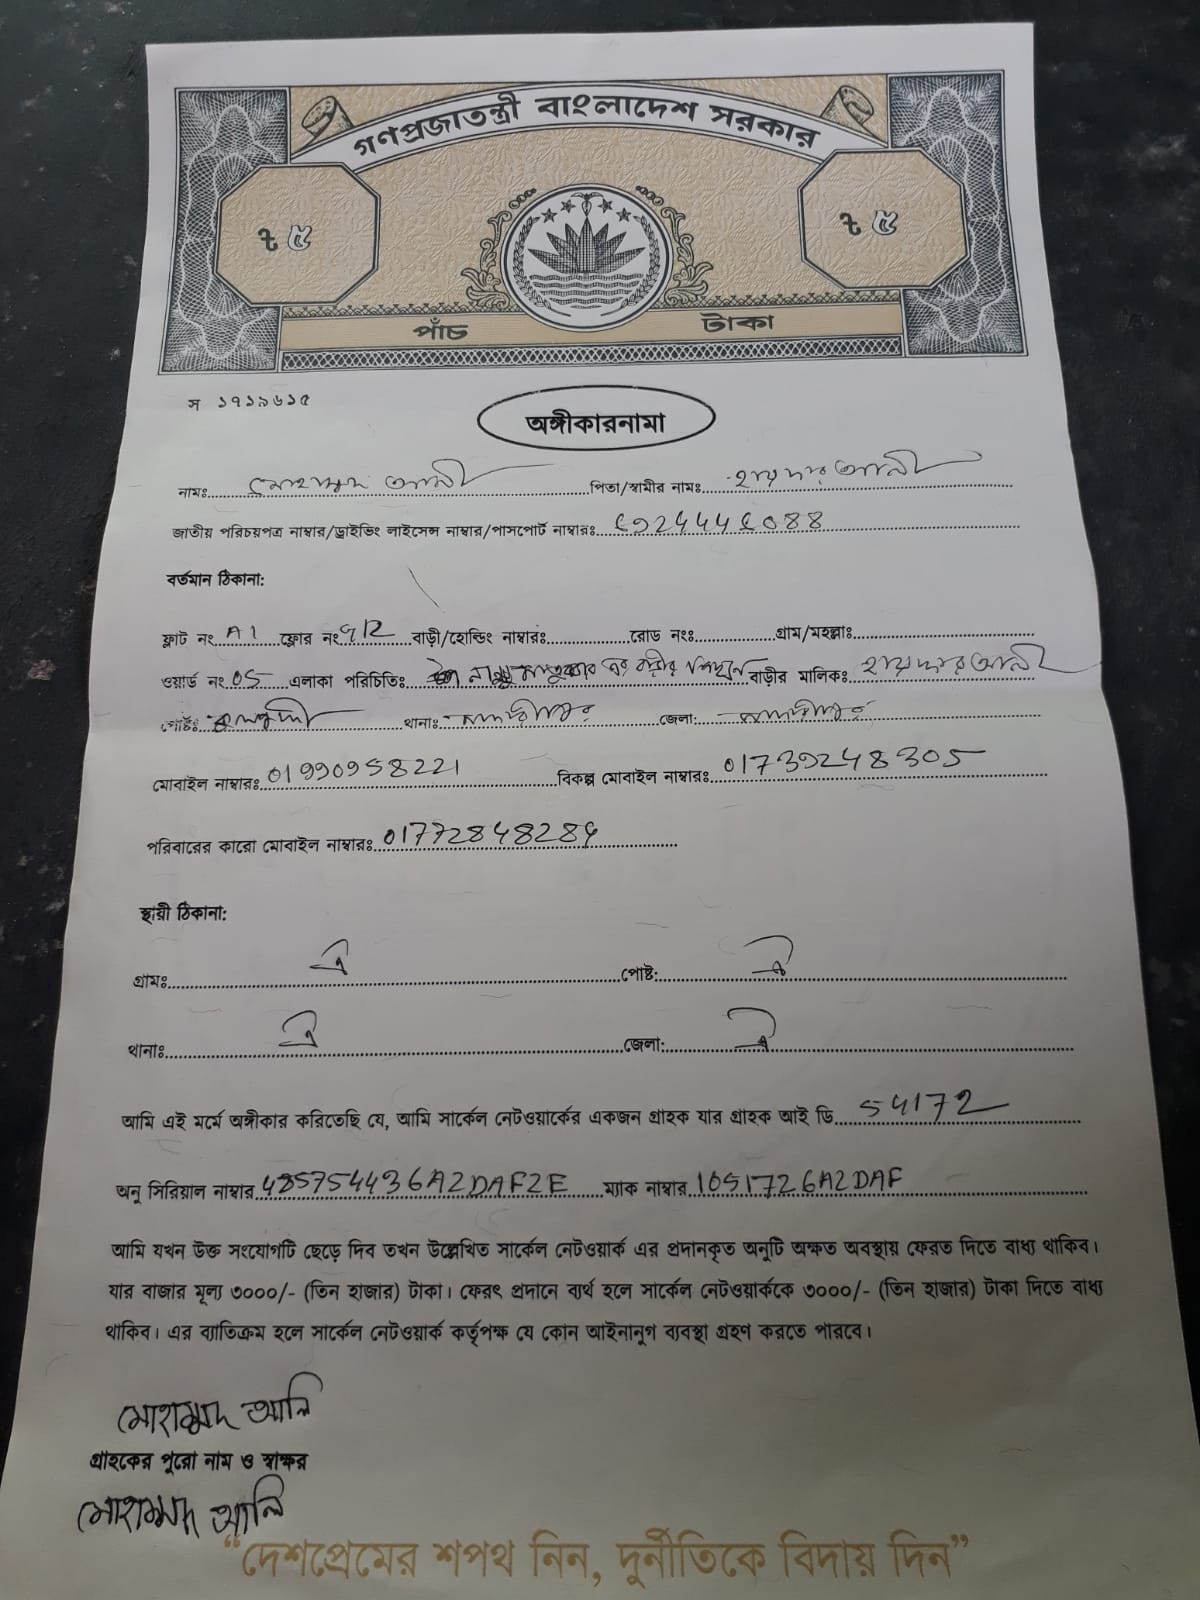 গণপ্রজাতন্ত্রী বাংলাদেশ সরকার
৳ ৫ ৳ ৫
পাঁচ টাকা
স ১৭১৯৬১৫
অঙ্গীকারনামা
নামঃ মোহাম্মদ আলী পিতা/স্বামীর নামঃ হায়দার আলী
জাতীয় পরিচয়পত্র নাম্বার/ড্রাইভিং লাইসেন্স নাম্বার/পাসপোর্ট নাম্বারঃ
বর্তমান ঠিকানা:
ফ্লাট নং A1 ফ্লোর নং বাড়ী/হোল্ডিং নাম্বারঃ রোড নংঃ গ্রাম/মহল্লাঃ
ওয়ার্ড নং 05 এলাকা পরিচিতিঃ এর বাড়ীর বাড়ীর মালিকঃ হায়দার আলী
পোষ্টঃ থানাঃ জেলা:
মোবাইল নাম্বারঃ 01990958221 বিকল্প মোবাইল নাম্বারঃ 01739248305
পরিবারের কারো মোবাইল নাম্বারঃ
স্থায়ী ঠিকানা:
গ্রামঃ ঐ পোষ্ট: ঐ
থানাঃ ঐ জেলা: ঐ
আমি এই মর্মে অঙ্গীকার করিতেছি যে, আমি সার্কেল নেটওয়ার্কের একজন গ্রাহক যার গ্রাহক আই ডি 54172
অনু সিরিয়াল নাম্বার 485754436A2DAF2E ম্যাক নাম্বার 1051726A2DAF
আমি যখন উক্ত সংযোগটি ছেড়ে দিব তখন উল্লেখিত সার্কেল নেটওয়ার্ক এর প্রদানকৃত অনুটি অক্ষত অবস্থায় ফেরত দিতে বাধ্য থাকিব।
যার বাজার মূল্য ৩০০০/- (তিন হাজার) টাকা। ফেরৎ প্রদানে ব্যর্থ হলে সার্কেল নেটওয়ার্ককে ৩০০০/- (তিন হাজার) টাকা দিতে বাধ্য
থাকিব। এর ব্যাতিক্রম হলে সার্কেল নেটওয়ার্ক কর্তৃপক্ষ যে কোন আইনানুগ ব্যবস্থা গ্রহণ করতে পারবে।
মোহাম্মদ আলি
গ্রাহকের পুরো নাম ও স্বাক্ষর
মোহাম্মদ আলি
“দেশপ্রেমের শপথ নিন, দুর্নীতিকে বিদায় দিন”